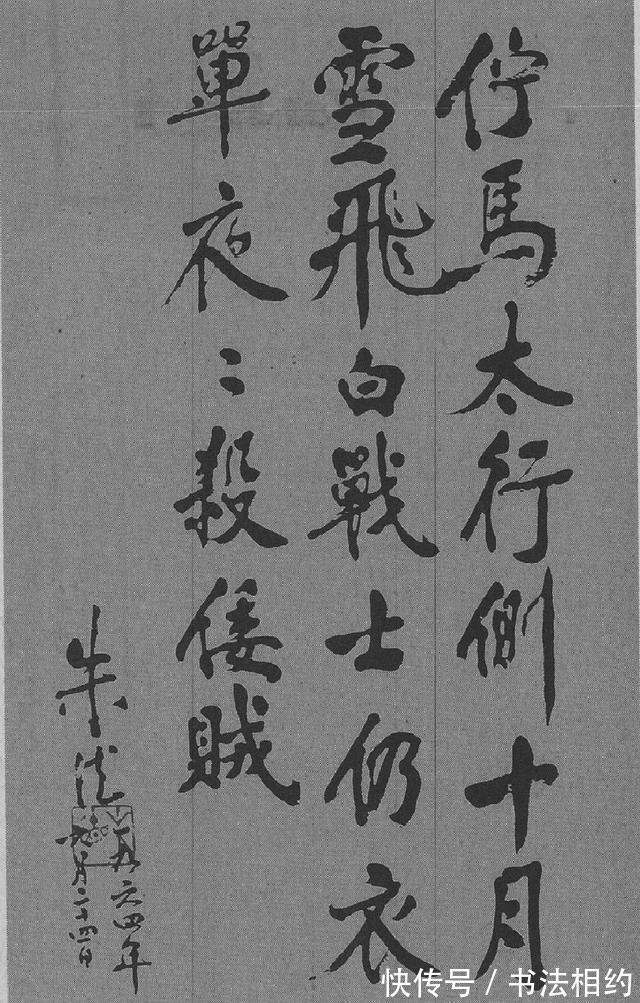 佇馬太行側十月
雪飛白戰士仍衣
單夜〻殺倭賊
朱德
一九六四年
九月二十四日
快传号/书法相约